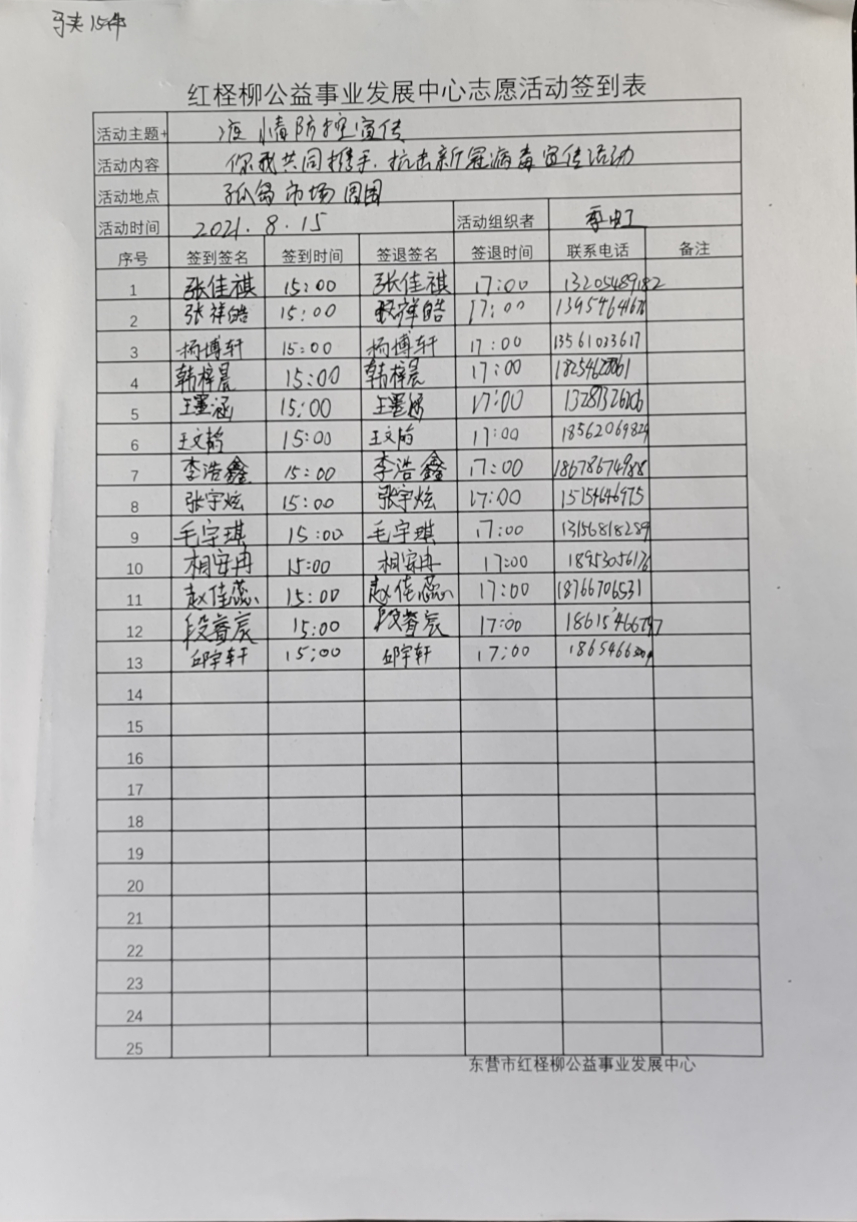 红柽柳公益事业发展中心志愿活动签到表
活动主题+ 疫情防控宣传
活动内容 你我共同携手、抗击新冠病毒宣传活动
活动地点 孤岛市场周围
活动时间 2021.8.15 活动组织者 季虹
序号 签到签名 签到时间 签退签名 签退时间 联系电话 备注
1 张佳祺 15:00 张佳祺 17:00 13205489182
2 张祥皓 15:00 张祥皓 17:00
3 杨博轩 15:00 杨博轩 17:00 13561023617
4 韩梓晨 15:00 韩梓晨 17:00
5 王墨涵 15:00 王墨涵 17:00
6 王文韵 15:00 王文韵 17:00 18562069829
7 李浩鑫 15:00 李浩鑫 17:00 18678674988
8 张宇炫 15:00 张宇炫 17:00 15154646975
9 毛宇琪 15:00 毛宇琪 17:00 13156818289
10 相安冉 15:00 相安冉 17:00 18953056176
11 赵佳蕊 15:00 赵佳蕊 17:00 18766706531
12 段睿宸 15:00 段睿宸 17:00
13 邱宇轩 15:00 邱宇轩 17:00
14
15
16
17
18
19
20
21
22
23
24
25
东营市红柽柳公益事业发展中心